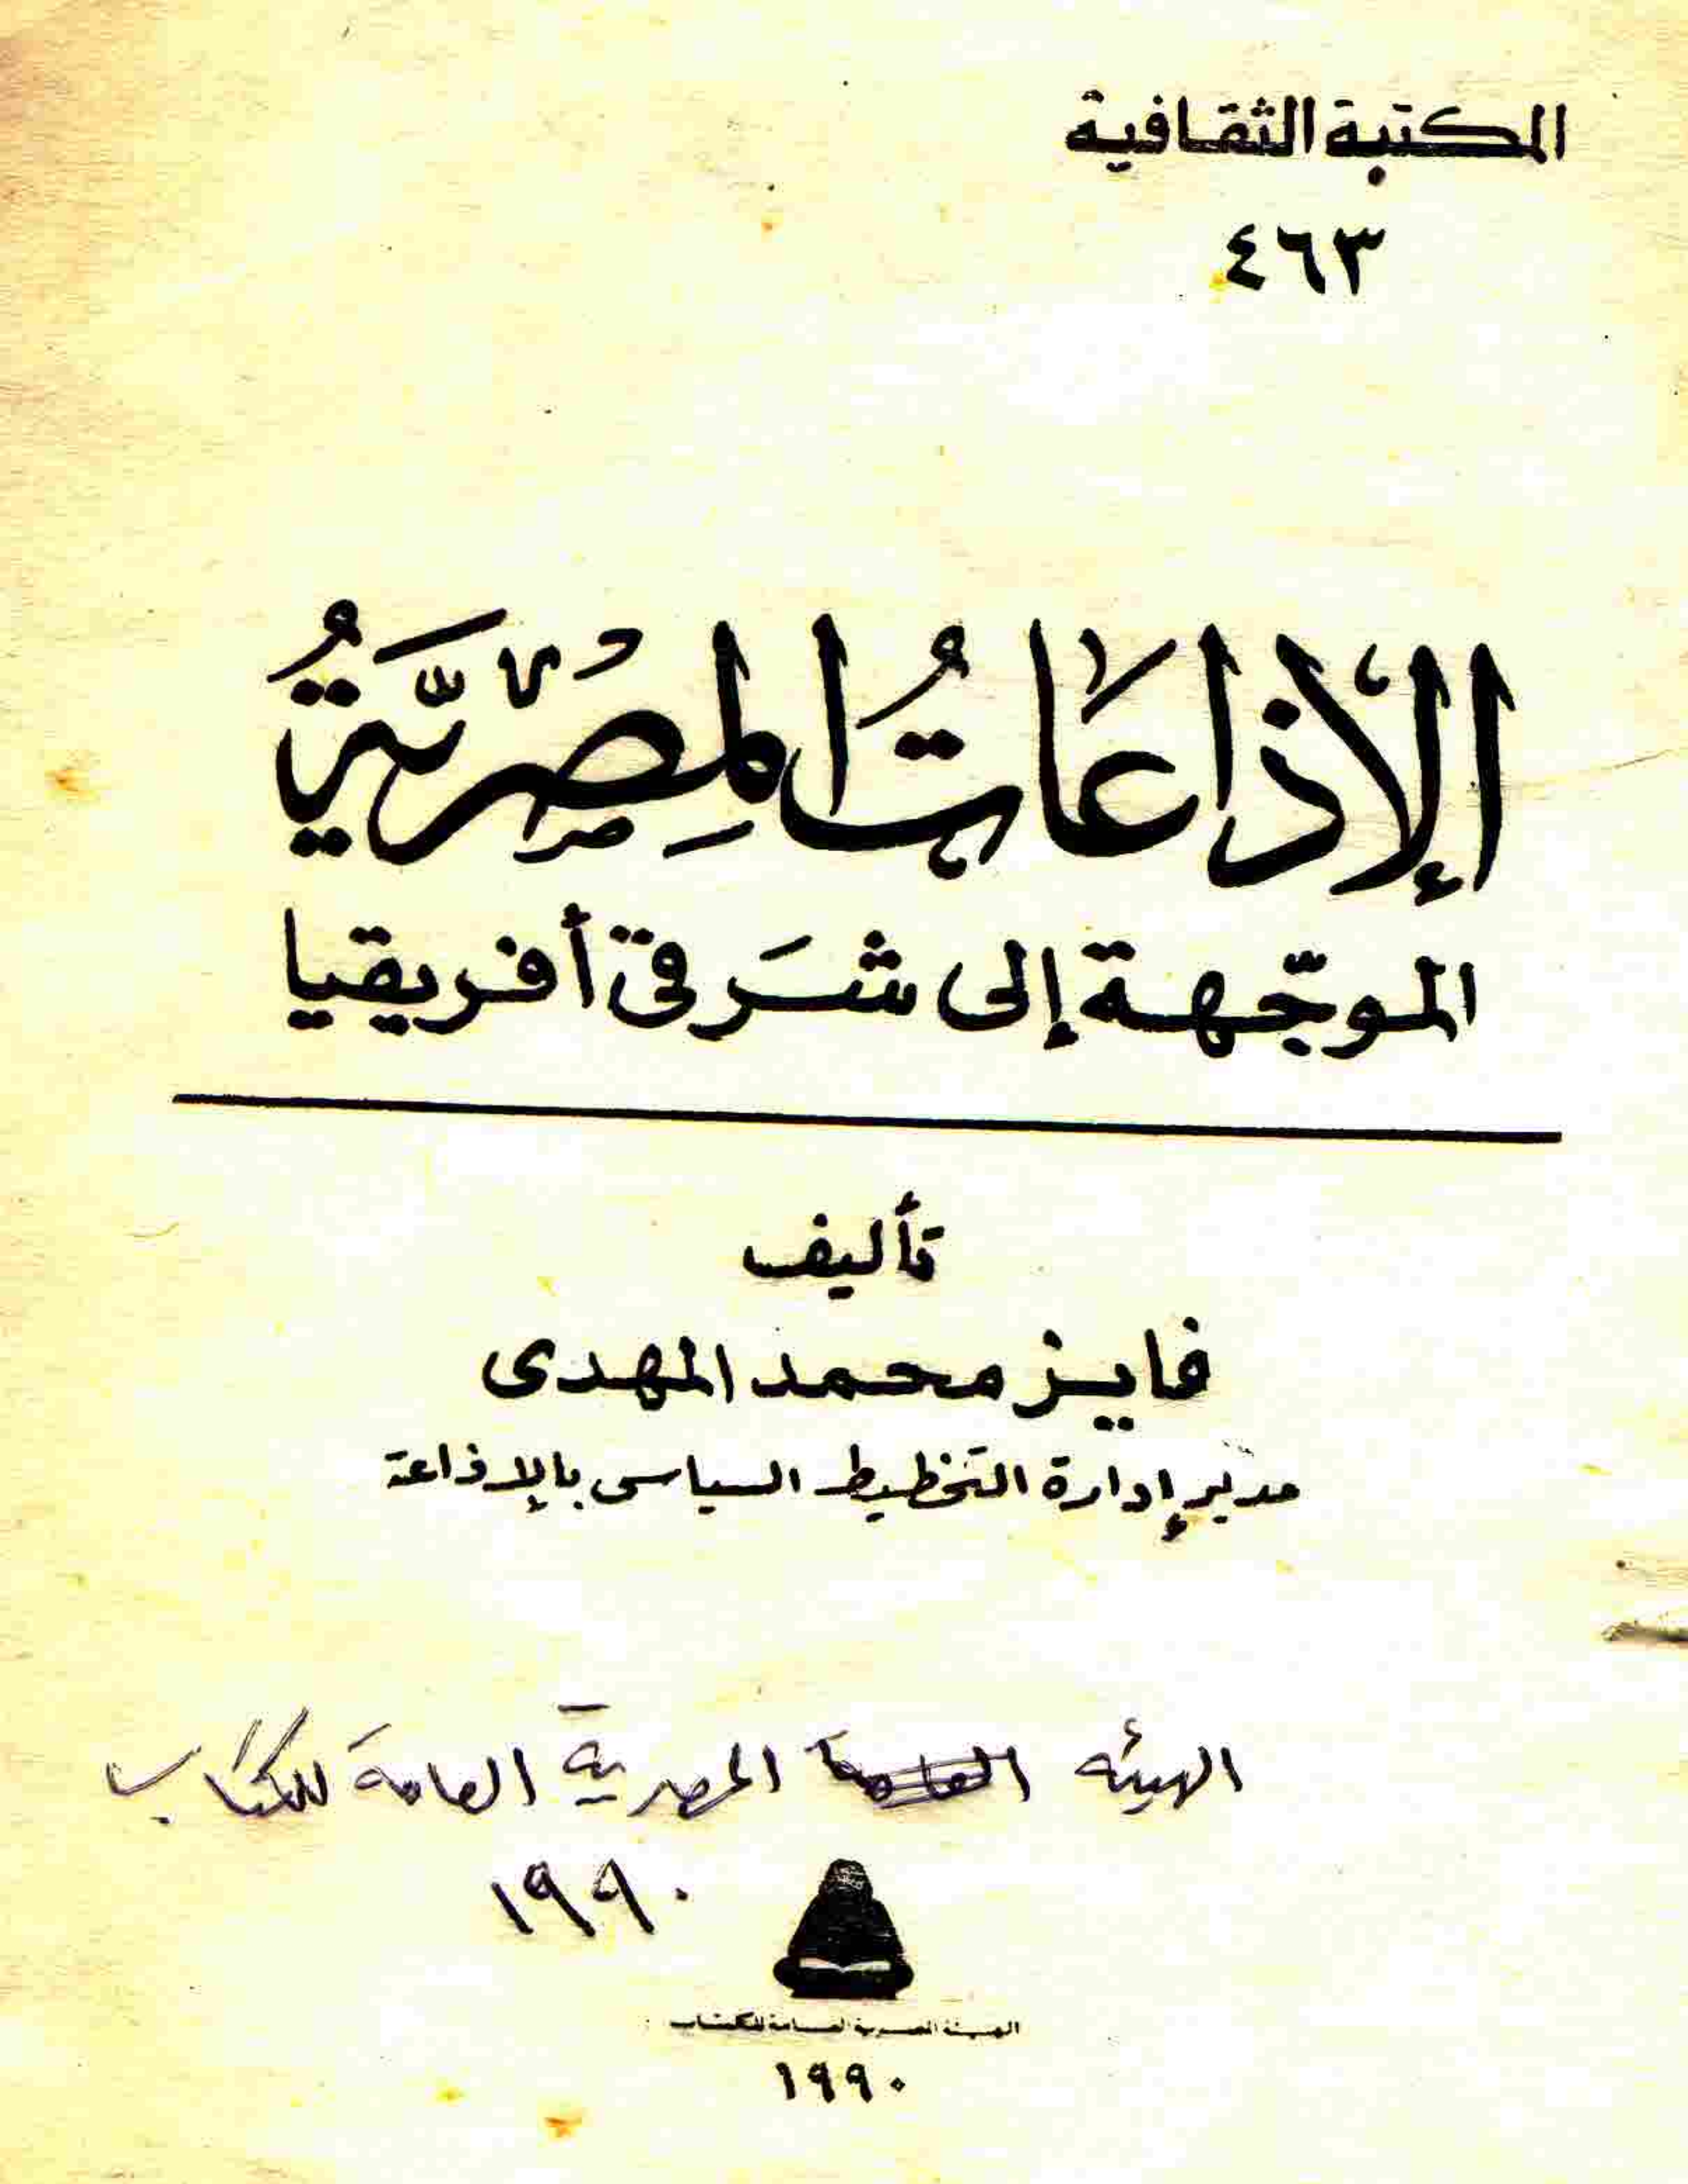 المكتبة الثقافية
٤٦٣
الإذاعاتُ المِصْرِيَّةُ
الموجّهة إلى شَرقى أفريقيا
تأليف
فايز محمد المهدى
مدير إدارة التخطيط السياسى بالإذاعة
الهيئه العامة المصرية العامة للكتاب
١٩٩٠
الهيئة المصرية العامة للكتاب
١٩٩٠